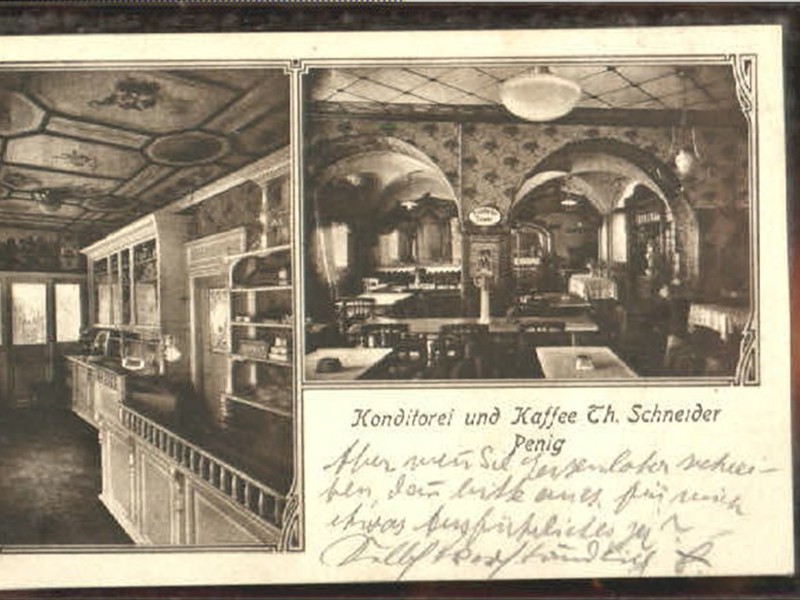 Konditorei und Kaffee Th. Schneider
Penig
Aber wenn Sie schrei-
ben, dann bitte auch für mich
etwas Ausführliches ja?
Selbstverständlich